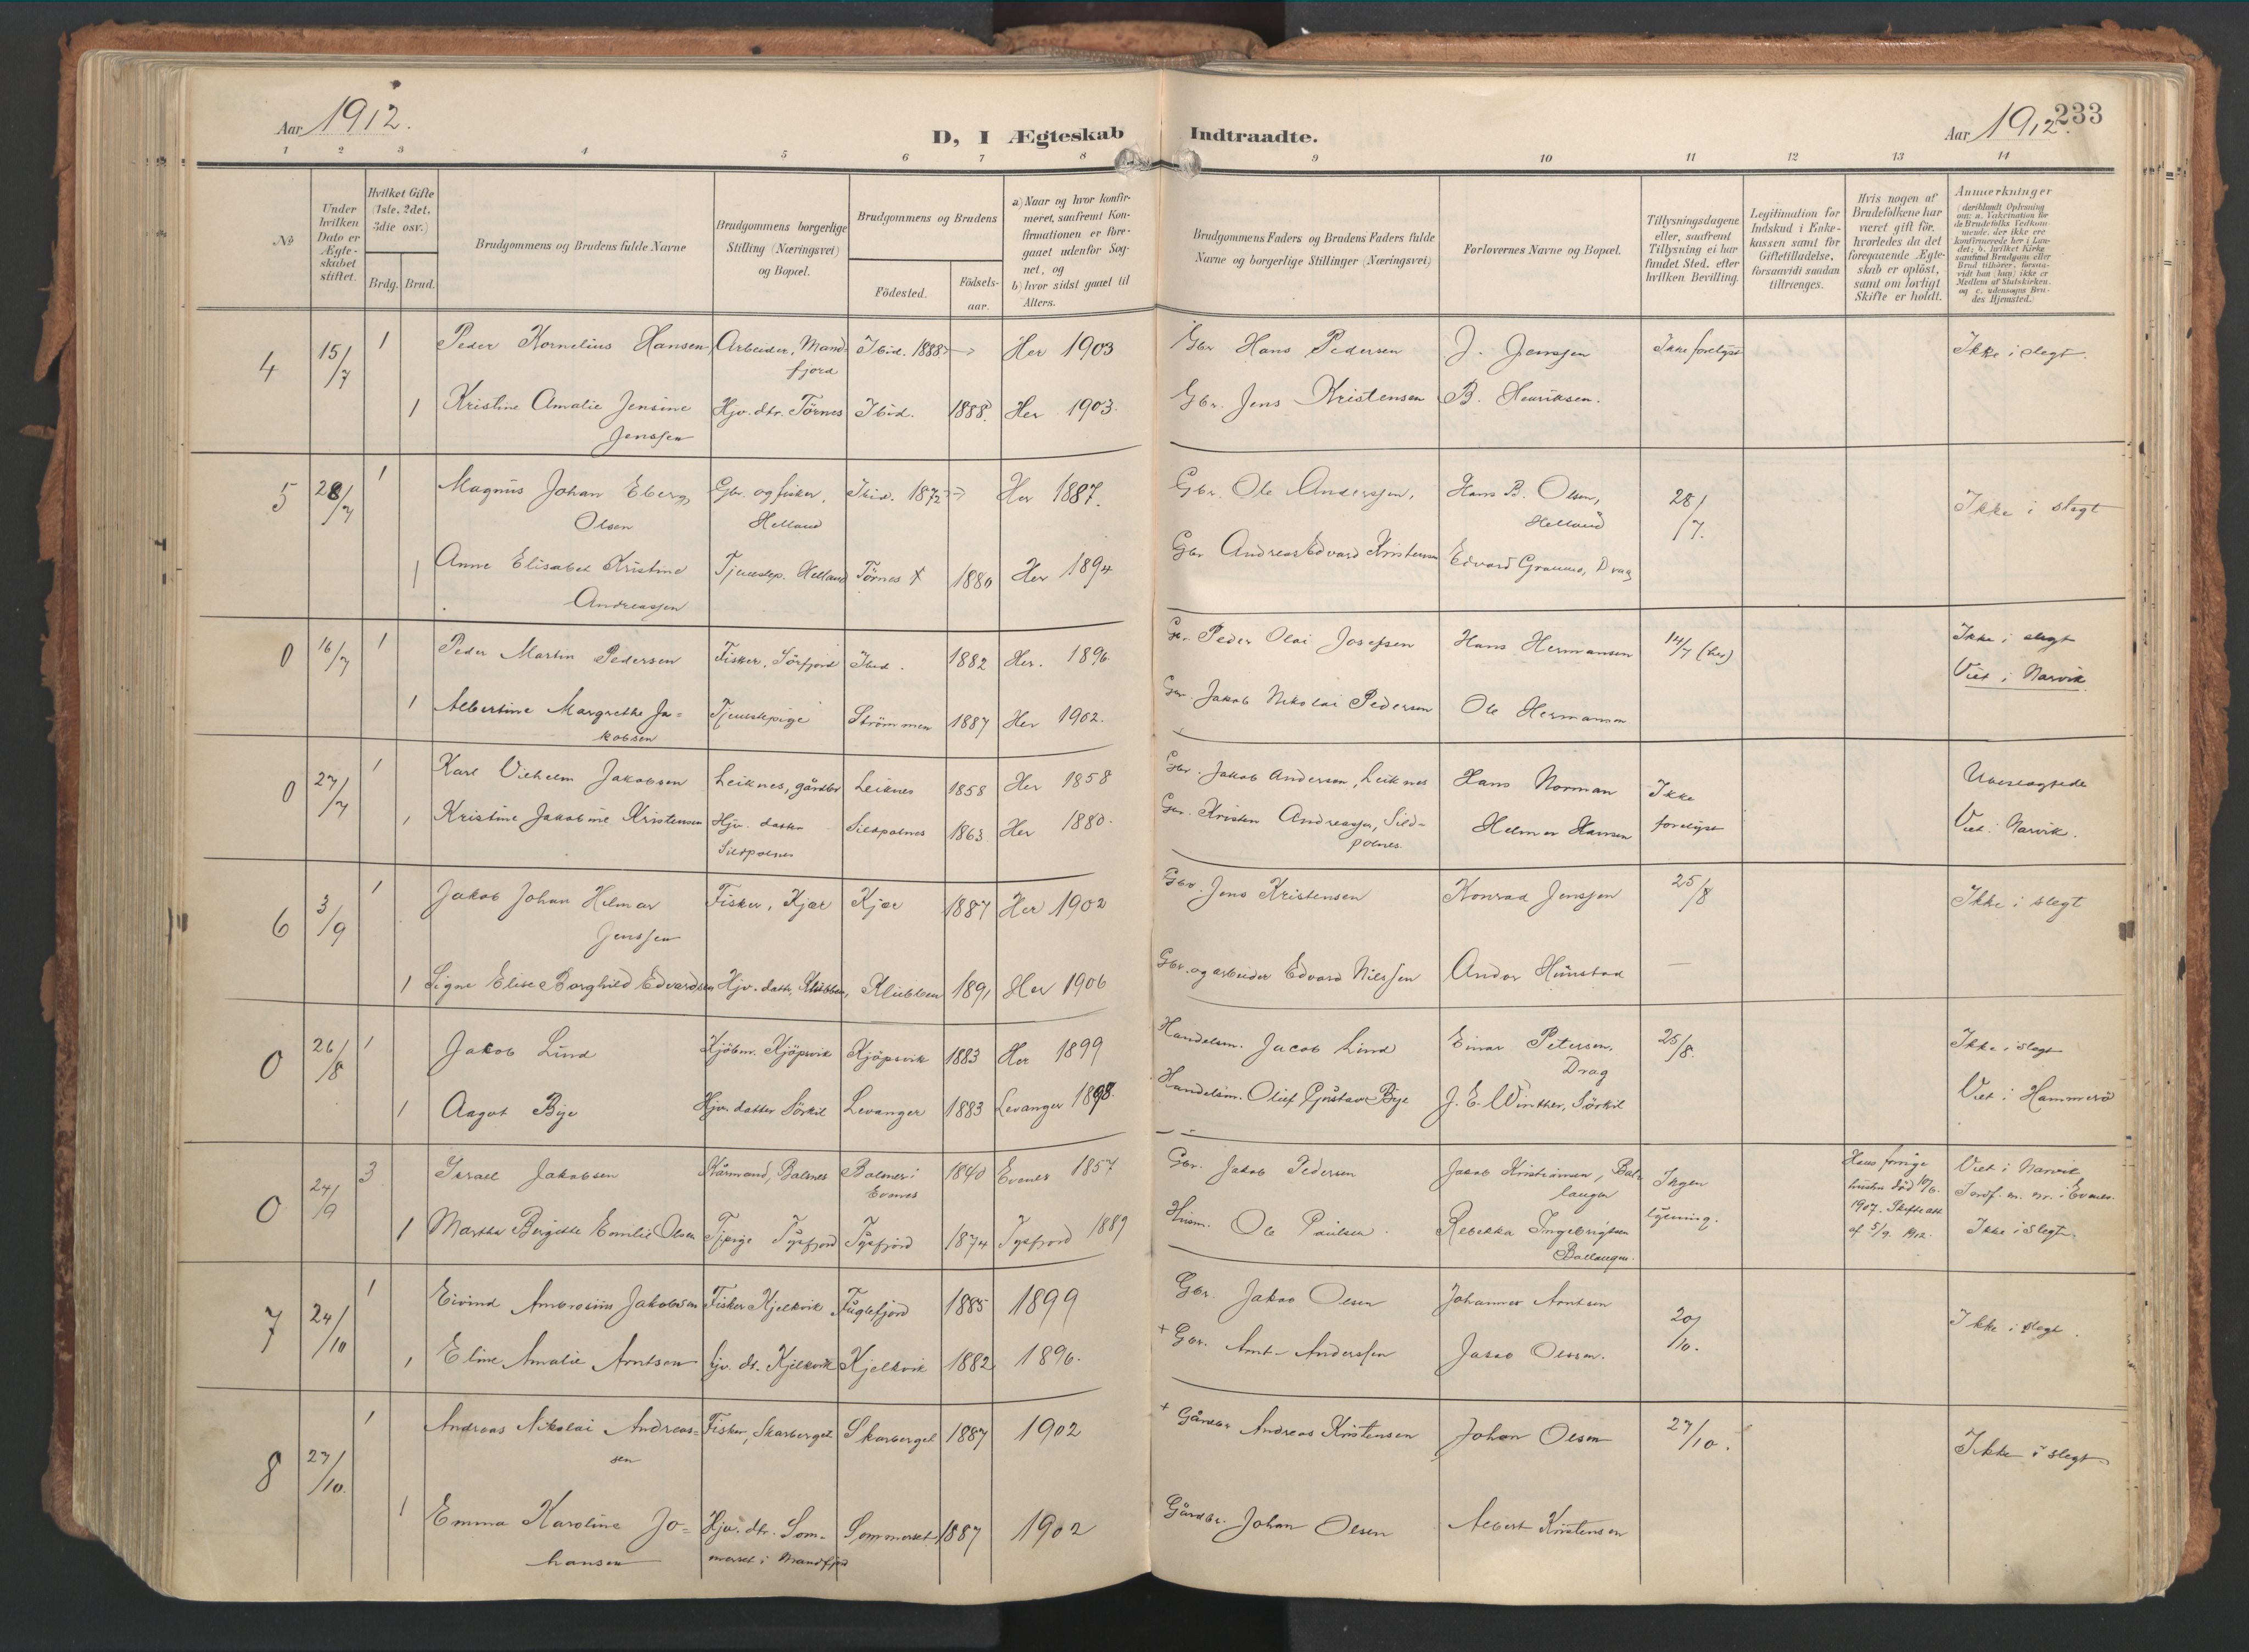 Aar 1912.
D, I Ægteskab Indtraadte.
Aar 1912. 233
1 2 3 4 5 6 7 8 9 10 11 12 13 14
№
Under hvilken Dato er Ægteskabet stiftet.
Hvilket Gifte (1ste, 2det, 3die osv.)
Brdg. Brud.
Brudgommens og Brudens fulde Navne
Brudgommens borgerlige Stilling (Næringsvei) og Bopæl.
Brudgommens og Brudens
Födested. Födsels-aar.
a) Naar og hvor konfirmeret, saafremt Konfirmationen er foregaaet udenfor Sognet, og
b) hvor sidst gaaet til Alters.
Brudgommens Faders og Brudens Faders fulde Navne og borgerlige Stillinger (Næringsvei)
Forlovernes Navne og Bopæl.
Tillysningsdagene eller, saafremt Tillysning ei har fundet Sted, efter hvilken Bevilling.
Legitimation for Indskud i Enkekassen samt for Giftetilladelse, forsaavidt saadan tiltrænges.
Hvis nogen af Brudefolkene har været gift för, hvorledes da det foregaaende Ægteskab er oplöst, samt om lovligt Skifte er holdt.
Anmerkninger (deriblandt Oplysning om: a. Vakcination for de Brudefolks Vedkommende, der ikke ere konfirmerede her i Landet; b. hvilket Kirkesamfund Brudgom eller Brud tilhører, forsaavidt han (hun) ikke er Medlem af Statskirken, og c. udensogns Brudes Hjemsted.)
4 15/7 1 Peder Kornelius Hansen, Arbeider, Mandfjord Ibid. 1888 Her 1903 Gbr Hans Pedersen J. Jenssen Ikke forelyst Ikke i slegt.
1 Kristine Amalie Jensine Jenssen Hjv. dtr. Törnes Ibid. 1888. Her 1903. Gbr. Jens Kristensen B. Henriksen.
5 28/7 1 Magnus Johan Eberg Olsen Gbr. og fisker, Helland Ibid. 1872 Her 1887. Gbr. Ole Anderssen, Hans B. Olsen, Helland 28/7. Ikke i slegt
1 Anne Elisabet Kristine Andreassen Tjenestep. Helland Törnes X 1880 Her 1894 Gbr Andreas Edvard Kristensen Edvard Drag
0 16/7 1 Peder Martin Pedersen Fisker, Sörfjord Ibid. 1882 Her. 1896. Gbr. Peder Olai Josefsen Hans Hermansen 14/7 (her) Ikke i slegt
Viet i Narvik
1 Albertine Margrethe Jakobsen Tjenestepige Strömmen 1887 Her 1902. Gbr. Jakob Nikolai Pedersen Ole Hermansen
0 27/7 1 Karl Vilhelm Jakobsen Leiknes, gårdbr Leiknes 1858 Her 1858 Gbr. Jakob Andersen, Leiknes Hans Norman Ikke forelyst Ubeslegtede
1 Kristine Jakobine Kristensen Hjv. datter Sildpolnes Sildpolnes 1863 Her 1880. Gbr. Kristen Andreassen, Sildpolnes. Helmer Hansen Viet i Narvik.
6 3/9 1 Jakob Johan Helmar Jenssen Fisker, Kjær Kjær 1887 Her 1902 Gbr. Jens Kristensen Konrad Jenssen 25/8 Ikke i slegt
1 Signe Elise Borghild Edvardsen Hjv. dattr, Klubben, Klubben 1891 Her 1906 Gbr. og arbeider Edvard Nilssen Andor Hunstad —
0 26/8 1 Jakob Lind Kjöbm. Kjöpsvik Kjöpsvik 1883 Her 1899 Handelsm. Jacob Lind Einar Petersen, Drag 25/8. Ikke i slegt
1 Aagot Bye Hjv. datter Sörkil Levanger 1883 Levanger 1898. Handelsm. Oluf Gustav Bye J. E. Winther, Sörkil Viet i Hammerö
0 24/9 3 Israel Jakobsen Kårmand, Balsnes Balsnes i Evenes 1840 Evenes 1857 Gbr. Jakob Pedersen Jakob Kristiansen, Ballangen Ingen lysning. Hans forrige hustru död 10/6. 1907. Skifteatt. af 5/9. 1912. Viet i Narvik
Jordf. m. nr. i Evenes.
Ikke i slegt.
1 Martha Bergitte Emilie Olsen Tjpige Tysfjord Tysfjord 1874 Tysfjord 1889 Husm. Ole Paulsen. Rebekka Ingebrigtsen Ballangen.
7 24/10 1 Eivind Ambrosius Jakobsen Fisker Kjelkvik Fuglefjord 1885 1899 Gbr. Jakob Olsen Johannes Arntsen 20/10. Ikke i slegt.
1 Eline Amalie Arntsen hjv. dt. Kjelkvik Kjelkvik 1882 1896. + Gbr. Arnt Anderssen Jakob Olssen.
8 27/10. 1 Andreas Nikolai Andreassen Fisker, Skarberget Skarberget 1887 1902 + Gårdbr Andreas Kristensen Johan Olsen 27/10. Ikke i slegt
1 Emma Karoline Johansen Hjv. dtr. Sommerset i Mandfjord Sommerset 1887 1902 Gårdbr. Johan Olsen Albert Kristensen